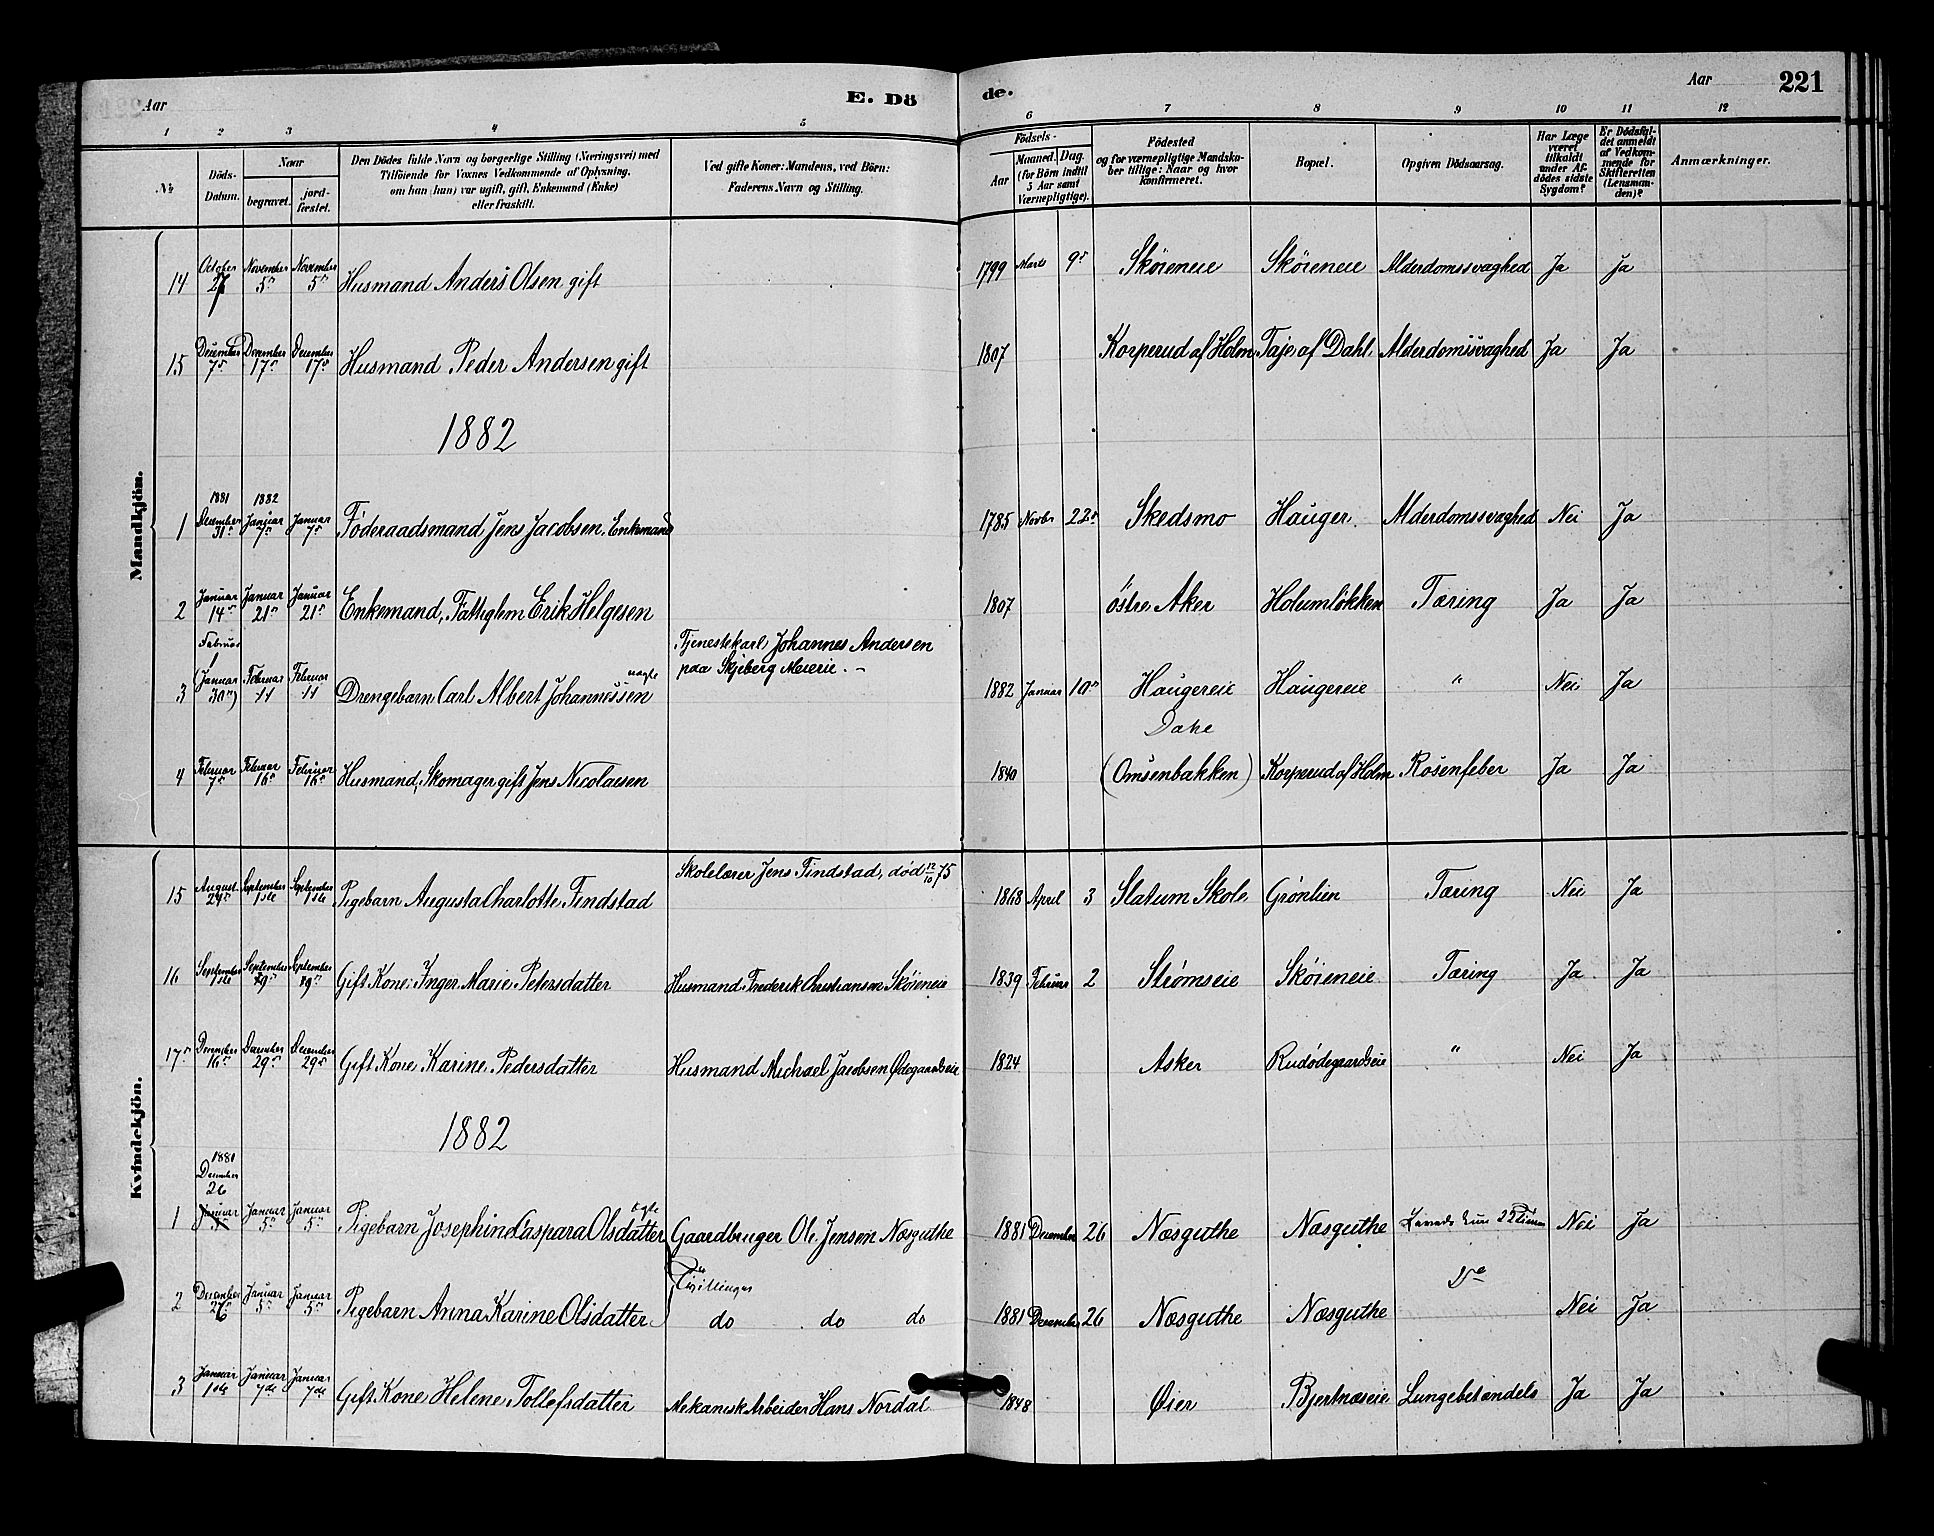 Aar
E. Dö
de.
Aar
221
1 2 3 4 5 6 7 8 9 10 11 12
№
Döds-Datum.
Naar
begravet.
jord-fæstet.
Den Dödes fulde Navn og borgerlige Stilling (Næringsvei) med
Tilföiende for Voxnes Vedkommende af Oplysning,
om han (hun) var ugift, gift, Enkemand (Enke)
eller fraskilt.
Ved gifte Koner: Mandens, ved Börn:
Faderens Navn og Stilling.
Födsels-
Aar
Maaned. Dag.
(for Börn indtil
5 Aar samt
Værnepligtige).
Födested
og for værnepligtige Mandska-
ber tillige: Naar og hvor
konfirmeret.
Bopæl.
Opgiven Dödsaarsag.
Har Læge
været
tilkaldt
under Af-
dödes sidste
Sygdom?
Er Dödsfal-
det anmeldt
af Vedkom-
mende for
Skifteretten
(Lensman-
den)?
Anmærkninger.
Mandkjön.
14 October 27 November 5 November 5 Husmand Anders Olsen gift 1799 Marts 9 Skøieneie Skøieneie Alderdomssvaghed Ja Ja
15 December 7 December 17 December 17 Husmand Peder Andersen gift 1807 Korperud af Holm Taje af Dahl Alderdomssvaghed Ja Ja
1882
1881 1882
1 December 31 Januar 7 Januar 7 Føderaadsmand Jens Jacobsen, Enkemand 1785 Novbr 22 Skedsmo Hauger Alderdomssvaghed Nei Ja
2 Januar 14 Januar 21 Januar 21 Enkemand, Fattiglem Erik Helgesen 1807 østre Aker Holumløkken Tæring Ja Ja
Februar
1
Tjenestekarl Johannes Andersen
paa Skjeberg Meierie.
uægte
3 (Januar 30) Februar 11 Februar 11 Drengebarn Carl Albert Johannessen 1882 Januar 10 Haugereie Haugereie " Nei Ja
Dahe
4 Februar 7 Februar 16 Februar 16 Husmand, Skomager gift Jens Nicolaesen 1840 (Omsenbakken) Korperud af Holm Rosenfeber Ja Ja
Kvindekjön.
Skolelærer Jens Findstad, død 12/10 75
15 August 24 September 1ste September 1ste Pigebarn Augusta Charlotte Findstad 1868 April 3 Slatum Skole Grønlien Tæring Nei Ja
16 September 1ste September 29 September 29 Gift Kone: Inger Marie Petersdatter Husmand Frederik Christiansen Skøieneie 1839 Februar 2 Strømseie Skøieneie Tæring Ja Ja
17 December 16 December 29 December 29 Gift Kone Karine Pedersdatter Husmand Michael Jacobsen Ødegaardseie 1824 Asker Rudødegaardseie " Nei Ja
1882
1881
December
26
ægte
1 Januar Januar 5 Januar 5 Pigebarn Josephine Caspara Olsdatter Gaardbruger Ole Jensen Næsguthe 1881 December 26 Næsguthe Næsguthe Levede kun 22 Timer Nei Ja
Tvillinger
2 December 26 Januar 5 Januar 5 Pigebarn Anna Karine Olsdatter do do do 1881 December 26 Næsguthe Næsguthe Do Nei Ja
3 Januar 1ste Januar 7de Januar 7de Gift Kone Helene Tollefsdatter Mekanisk Arbeider Hans Nordal 1848 Øier Bjertnæseie Lungebetændelse Ja Ja